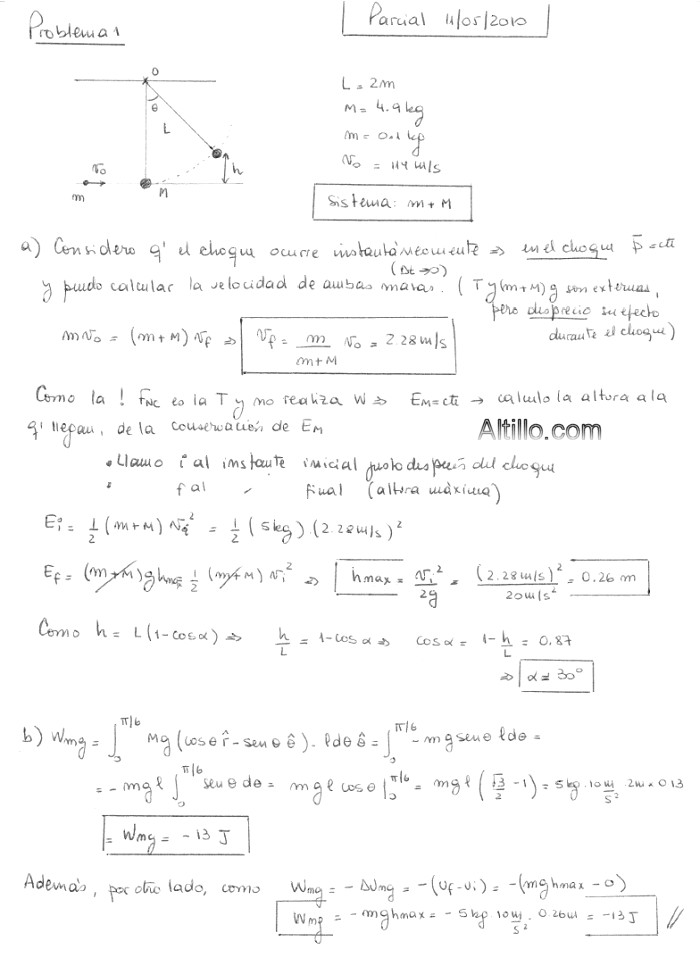 Problema 1
Parcial 11/05/2010
O
θ
L
h
v₀
m
M
L = 2m
M = 4.9 kg
m = 0.1 kg
v₀ = 114 m/s
Sistema: m + M
a) Considero q' el choque ocurre instantáneamente ⇒ en el choque p̄ = cte
(Δt → 0)
y puedo calcular la velocidad de ambas masas. (T y (m+M) g son externas,
pero desprecio su efecto
durante el choque)
m v₀ = (m+M) v_f ⇒ v_f = m/(m+M) v₀ = 2.28 m/s
Como la ! F_NC es la T y no realiza W ⇒ E_M = cte → calculo la altura a la
q' llegan, de la conservación de E_M
Altillo.com
• Llamo i al instante inicial justo después del choque
• f al " final (altura máxima)
E_i = 1/2 (m+M) v_i² = 1/2 (5kg) . (2.28 m/s)²
E_f = (m+M) g hmax = 1/2 (m+M) v_i² ⇒ hmax = v_i²/2g = (2.28 m/s)²/20 m/s² = 0.26 m
Como h = L(1-cos α) ⇒ h/L = 1-cos α ⇒ cos α = 1 - h/L = 0.87
⇒ α = 30°
b) W_mg = ∫₀^π/6 Mg (cos θ r̂ - sen θ θ̂) . l dθ θ̂ = ∫₀^π/6 - mg sen θ l dθ =
= - mg l ∫₀^π/6 sen θ dθ = mg l cos θ |₀^π/6 = mg l (√3/2 - 1) = 5 kg . 10 m/s² . 2m x 0.13
= W_mg = - 13 J
Además, por otro lado, como W_mg = - ΔU_mg = - (U_f - U_i) = - (mg hmax - 0)
W_mg = - mg hmax = - 5 kg . 10 m/s² . 0.26 m = - 13 J //